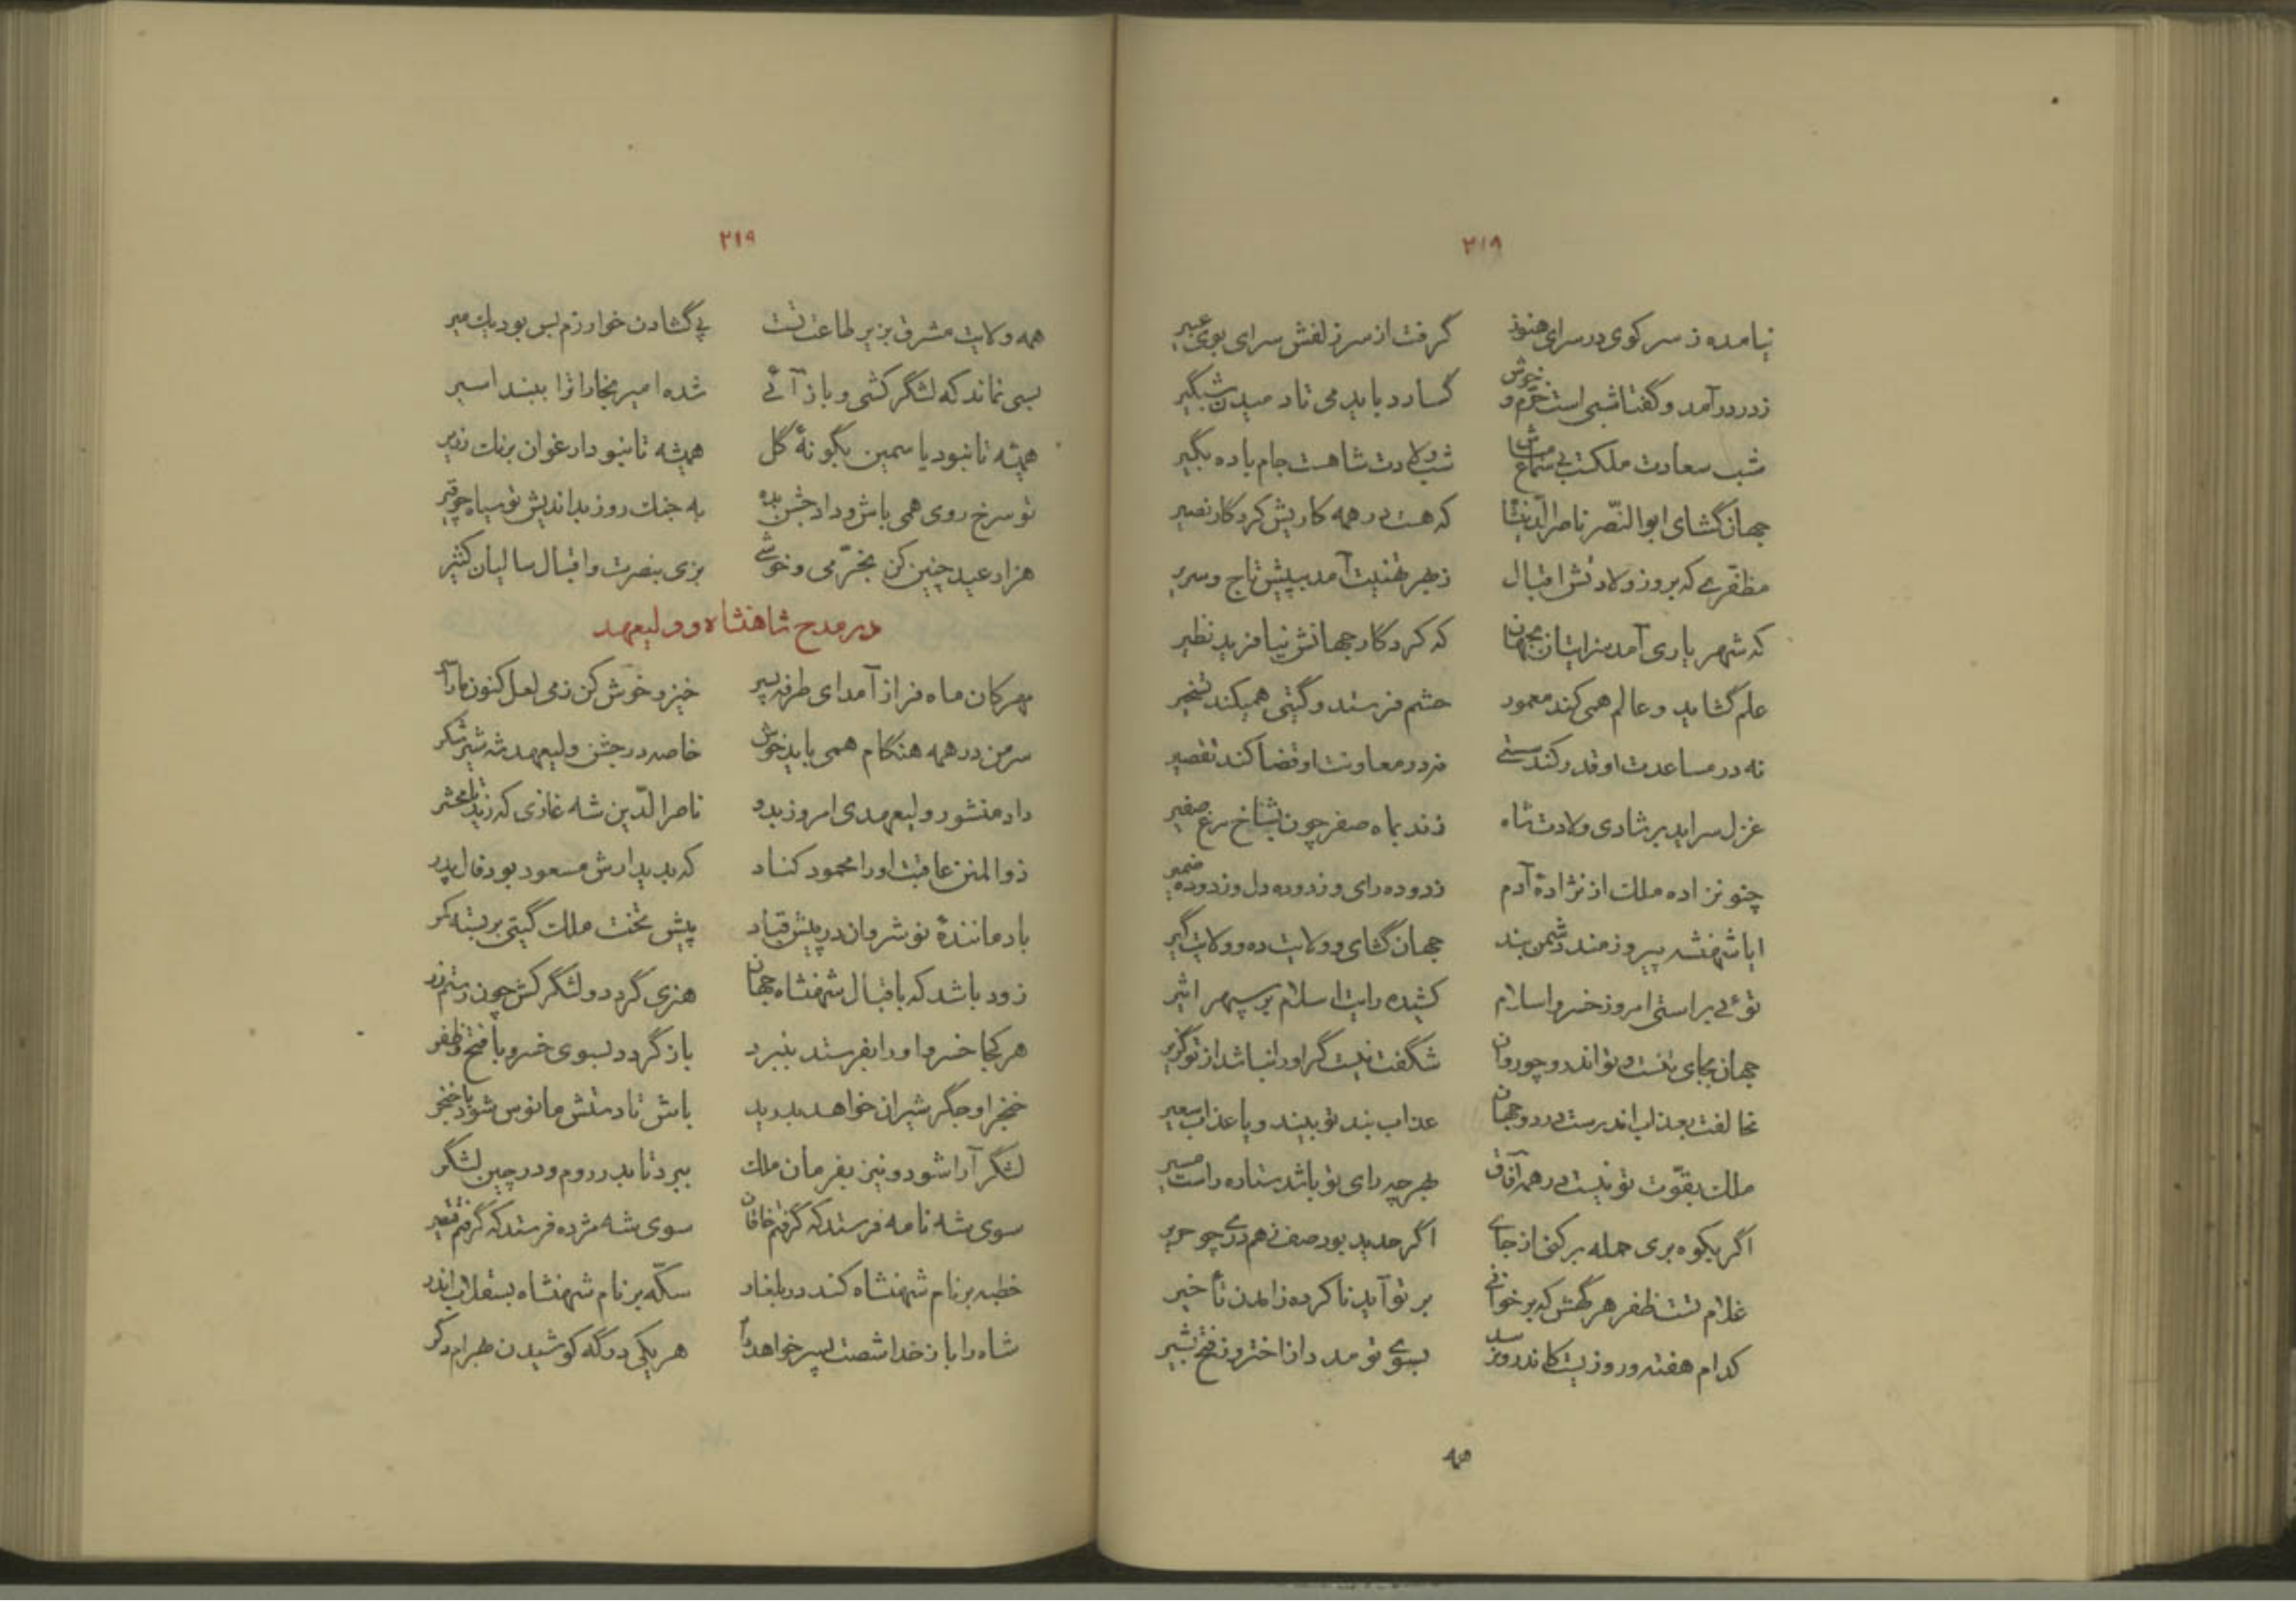 ۲۱۹
نیامده ز سر کوی در سرای هنوز گرفت از سر زلفش سرای بوی عبیر
ز در درآمد و گفتا شبی است خرّم و خوش گسارد باید می تا دمیدن شبگیر
شب سعادت ملکت شب ولادت شاهست جام باده بگیر
جهان گشای ابوالنّصر ناصرالدّین شا که هست در همه کاریش کردگار نصیر
مظفّری که بروز ولادتش اقبال ز بهر تهنیت آمد بپیش تاج و سریر
که شهریاری آمد بجهان که کردگار جهانش نیافرید نظیر
علم گشاید و عالم همی کند معمور حشم فرستد و گیتی همیکند تسخیر
نه در مساعدت او قدر کند سستی نه در معاونت او قضا کند تقصیر
غزل سراید بر شادی ولادت شاه زند بماه صفر چون بشاخ مرغ صفیر
چنو نزاده ملک از نژادهٔ آدم زدوده رای و زدوده دل و زدوده ضمیر
ایا شهنشه پیروزمند دشمن بند جهان گشای و ولایت ده و ولایت گیر
توئی براستی امروز خسرو اسلام کشیده رایت اسلام بر سپهر اثیر
جهان بجای تنست و تو اندرو چو روان شگفت نیست گر او را نباشد از تو گزیر
مخالفت بعذاب اندرست در دو جهان عذاب بند تو بیند و یا عذاب سعیر
ملک بقوّت تو نیست در همه آفاق بهر چه رای تو باشد ستاره راست مسیر
اگر بکوه بری حمله برکنی از جای اگر حدید بود صف ز هم دری چو حریر
غلام تست ظفر هر گهش که برخوانی بر تو آید ناکرده ز آمدن تأخیر
کدام هفته و روزیست کاندرو نرسد بسوی تو مدد از اختر و ز فتح بشیر
همه
۲۱۹
همه ولایت مشرق بزیر طاعت تست پی گشادن خوارزم بس بود یک میر
بسی نماند که لشگر کشی و باز آئی شده امیر بخارا ترا ببند اسیر
همیشه تا نبود یاسمین بگونهٔ گل همیشه تا نبود ارغوان برنگ زریر
تو سرخ روی همی باش و داد جشن بده به جنگ روز بداندیش تو سیاه چو قیر
هزار عید چنین کن بخرّمی و خوشی بزی بنصرت و اقبال سالیان کثیر
در مدح شاهنشاه و ولیعهد
مهرکان ماه فراز آمد ای طرفه پسر خیز و خوش کن ز می لعل کنون ما را سر
سر من در همه هنگام همی باید خوش خاصه در جشن ولیعهد شه شیر شکر
داد منشور ولیعهدی امروز بدو ناصرالدّین شه غازی که زید تا محشر
ذوالمنن عاقبت او را محمود کناد که بدیدارش مسعود بود فال پدر
باد مانندهٔ نوشروان در پیش قباد پیش تخت ملک گیتی بر بسته کمر
زود باشد که باقبال شهنشاه جهان هنری گردد و لشگرکش چون رستم زر
هر کجا خسرو او را بفرستد بنبرد باز گردد بسوی خسرو با فتح و ظفر
خنجر او جگر شیران خواهد بدرید باش تا دستش مانوس شود با خنجر
لشگر آرا شود و نیز بفرمان ملک ببرد تا بدر روم و در چین لشگر
سوی شه نامه فرستد که گرفتم خاقان سوی شه مژده فرستد که گرفتم قیصر
خطبه بر نام شهنشاه کند در بلغار سکّه بر نام شهنشاه بسقلاب اندر
شاه را باز خدا شصت پسر خواهد داد هر یکی در گه کوشیدن بهرام دگر